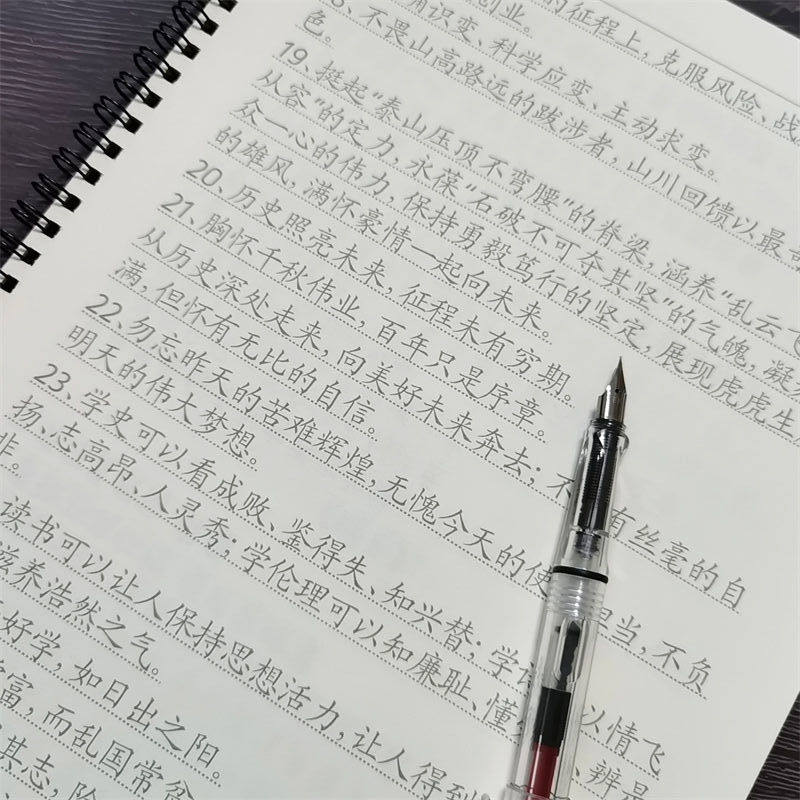 的征程上，克服风险、战
创业。
识变、科学应变、主动求变。
不畏山高路远的跋涉者，山川回馈以最
色。
19、挺起“泰山压顶不弯腰”的脊梁，涵养“乱云飞
从容”的定力，永葆“石破不可夺其坚”的气魄，凝
众一心的伟力，保持勇毅笃行的坚定，展现虎虎生
的雄风，满怀豪情一起向未来。
20、历史照亮未来，征程未有穷期。
21、胸怀千秋伟业，百年只是序章。
从历史深处走来，向美好未来奔去；不 有丝毫的自
满，但怀有无比的自信。
22、勿忘昨天的苦难辉煌，无愧今天的使 担当，不负
明天的伟大梦想。
23、学史可以看成败、鉴得失、知兴替；学 以情飞
扬、志高昂、人灵秀；学伦理可以知廉耻、懂 、辨是
非。
读书可以让人保持思想活力，让人得到
滋养浩然之气。
好学，如日出之阳。
富，而乱国常贫
其志，